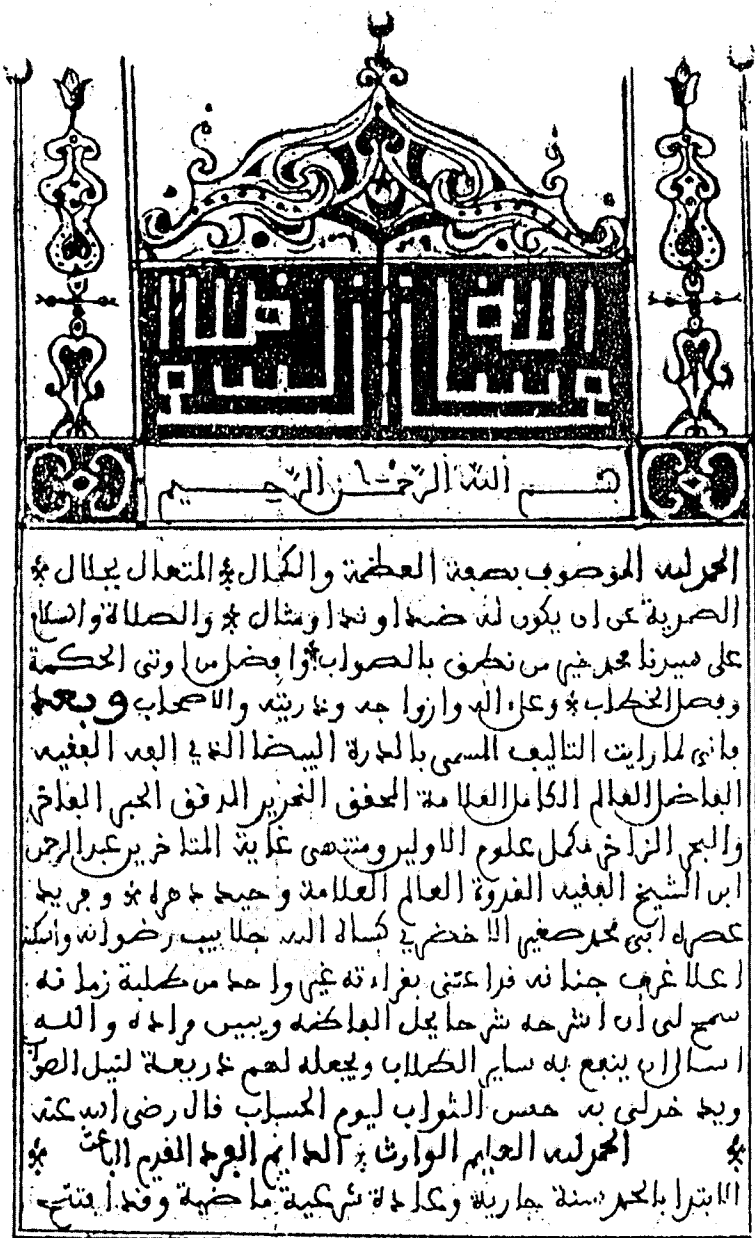 بسم الله الرحمن الرحيم
الحمد لله الموصوف بصفة العظمة والكمال * المتعال بجلال *
الصمدية عن ان يكون له ضدا و ندا ومثال * والصلاة والسلام
على سيدنا محمد خير من نطق بالصواب * وافضل من اوتي الحكمة
وفصل الخطاب * وعلى اله وازواجه وذريته والاصحاب وبعد
فاني لما رايت التاليف المسمى بالدرة البيضا الذي الفه الفقيه
الفاضل العالم الكامل العلامة المحقق النحرير المدقق الحبر الفاخر
والبحر الزاخر مكمل علوم الاولين ومنتهى غاية المتاخرين عبد الرحمن
ابن الشيخ الفقيه القدوة العالم العلامة وحيد دهره * وفريد
عصره ابي محمد صغير الاخضري كساه الله جلابيب رضوانه واسكنه
اعلا غرف جنانه قد اعتنى بقراءته غير واحد من طلبة زمانه
سمح لي ان اشرحه شرحا يحل الفاظه ويبين مراده والله
اسال ان ينفع به ساير الطلاب ويجعله لهم ذريعة لنيل الصواب
ويدخر لي به حسن الثواب ليوم الحساب قال رضي الله عنه
* الحمد لله العليم الوارث * الدايم الفرد القديم الباعث *
الابتدا بالحمد سنة جارية وعادة شرعية ماضية وقد افتتح